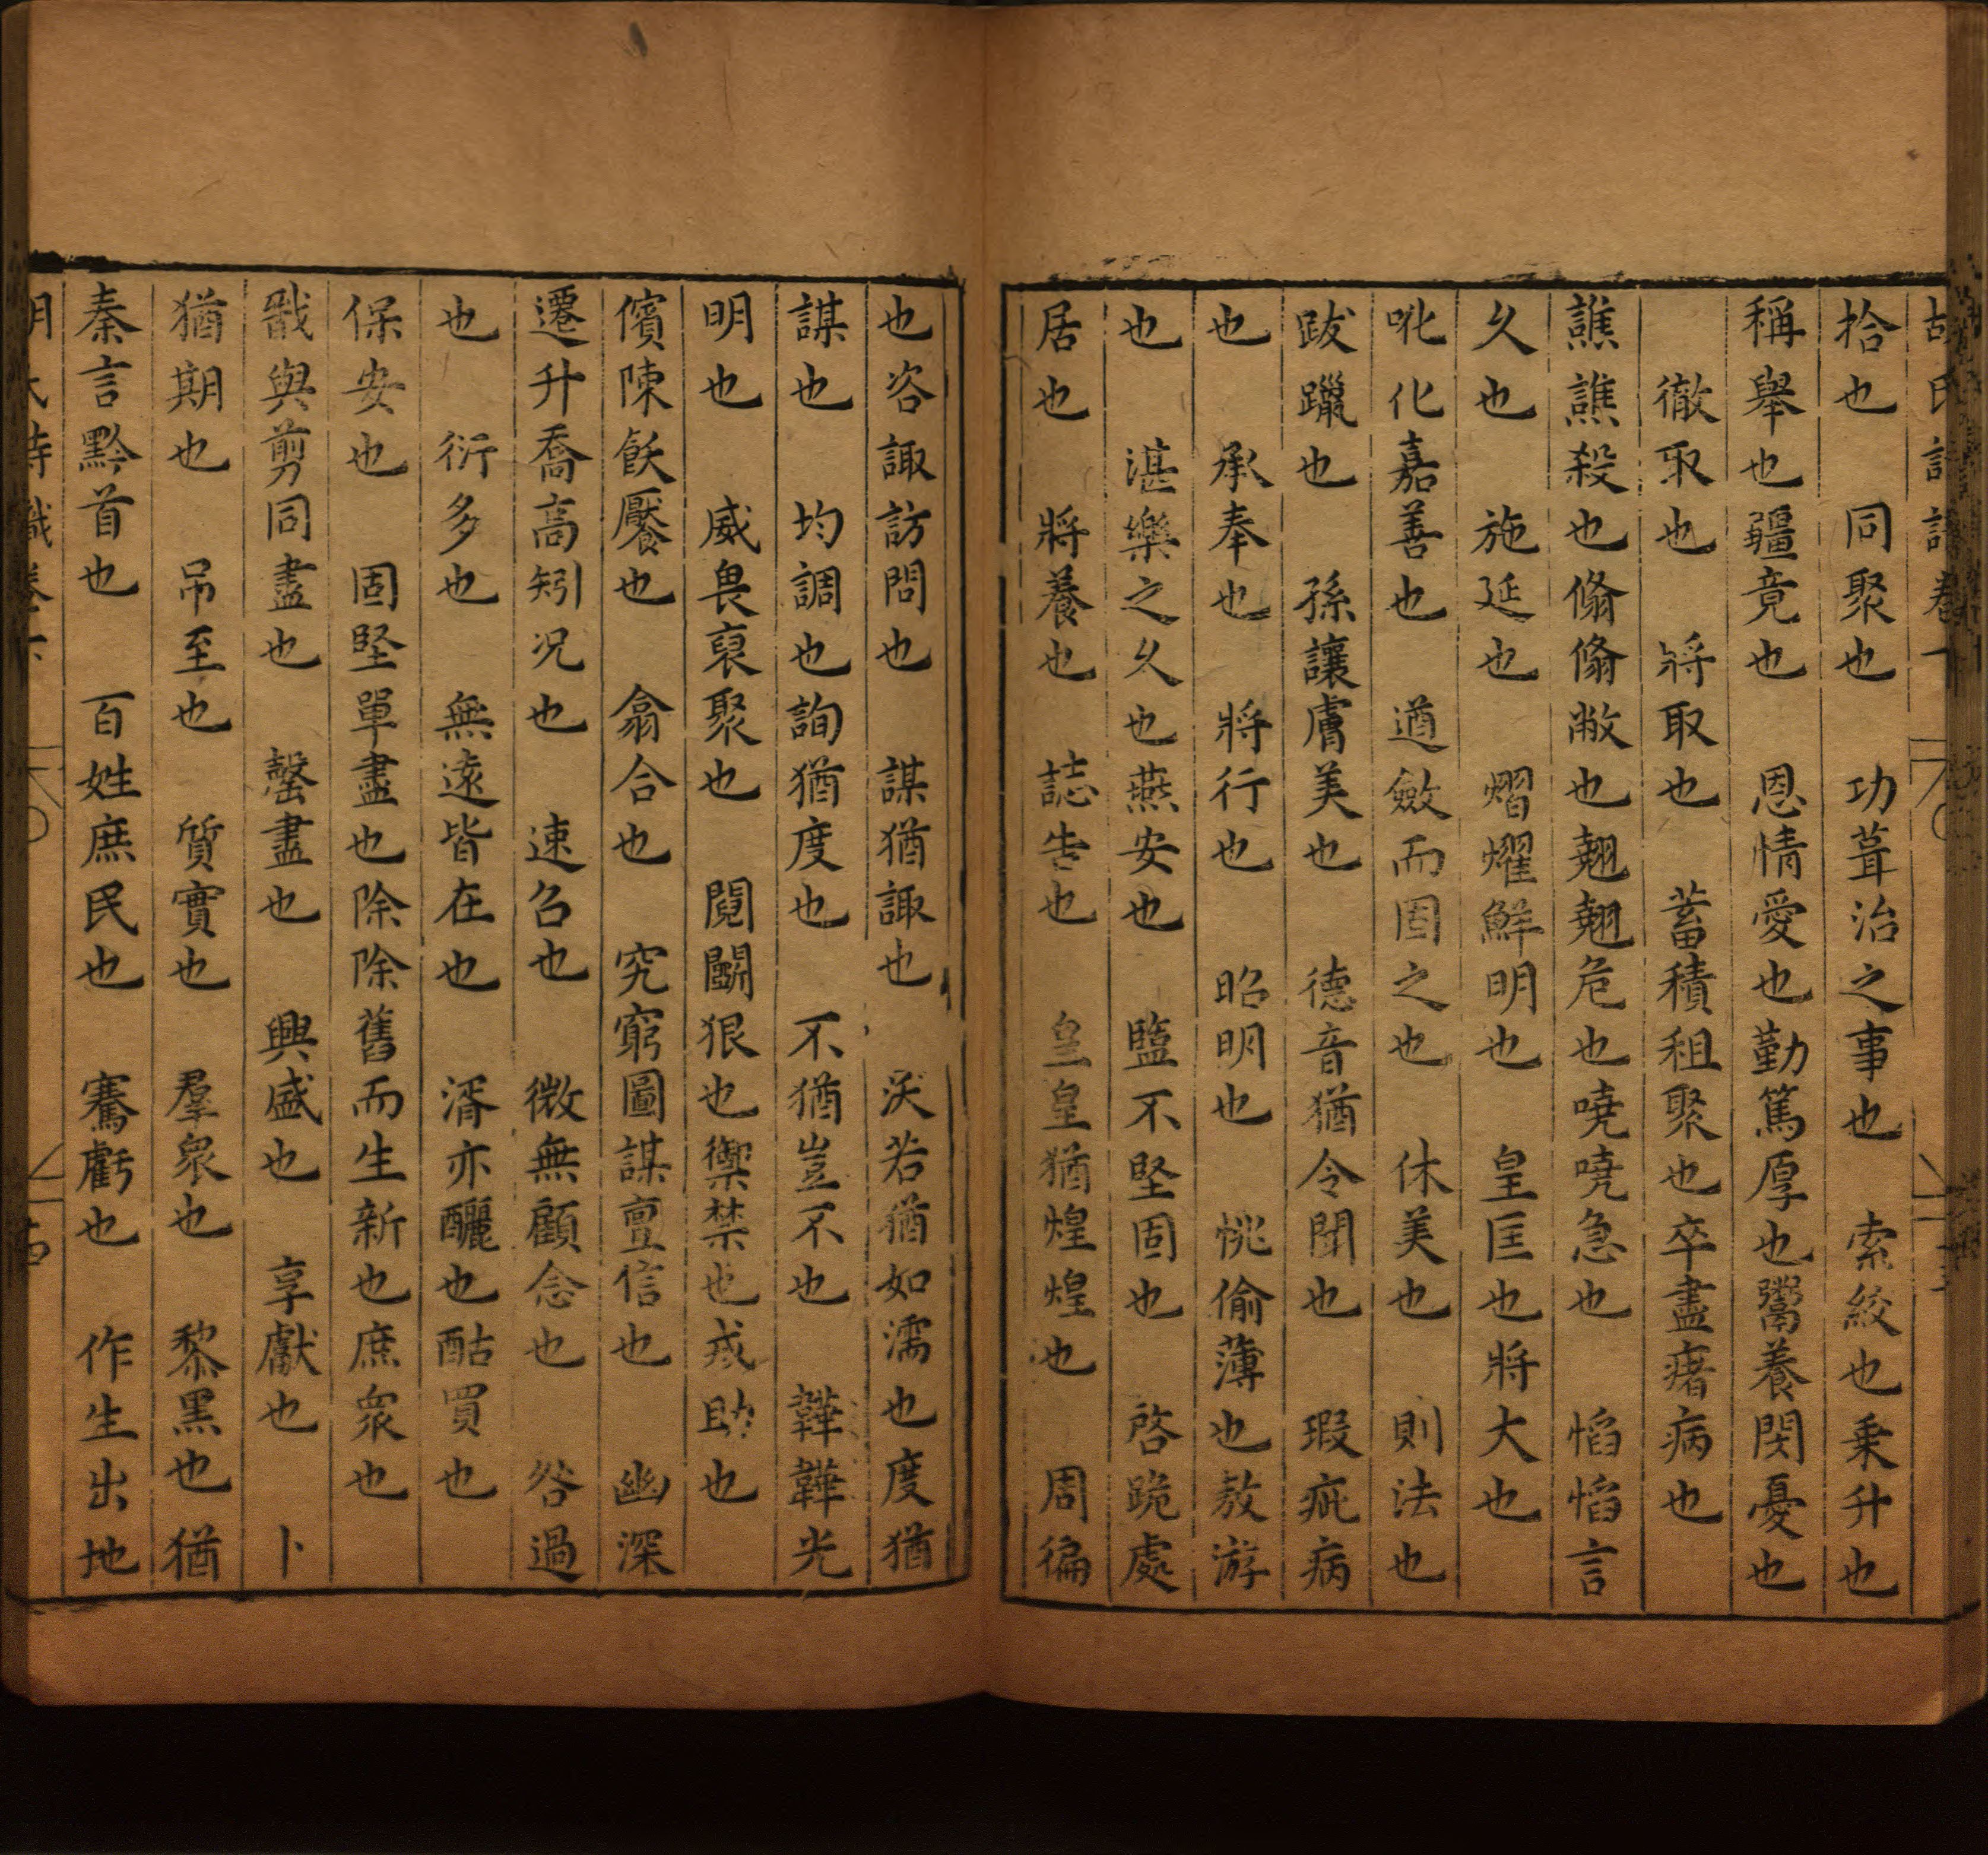 拾也　同聚也　功葺治之事也　索絞也乗升也
稱舉也疆竟也　恩情愛也勤篤厚也鬻養閔憂也
徹取也　將取也　蓄積租聚也卒盡瘏病也
譙譙殺也翛翛敝也翹翹危也嘵嘵急也　慆慆言
久也　施延也　熠燿鮮明也　皇匡也將大也
吪化嘉善也　遒斂而固之也　休美也　則法也
跋躐也　孫讓膚美也　德音猶令聞也　瑕疵病
也　承奉也　將行也　昭明也　恌偷薄也敖游
也　湛樂之久也燕安也　盬不堅固也　啓跪處
居也　將養也　誌告也　皇皇猶煌煌也　周徧
也咨諏訪問也　謀猶諏也　沃若猶如濡也度猶
謀也　均調也詢猶度也　不猶豈不也　韡韡光
明也　威畏裒聚也　鬩鬭狠也禦禁也戎助也
儐陳飫饜也　翕合也　究窮圖謀亶信也　幽深
遷升喬高矧况也　速召也　微無顧念也　咎過
也　衍多也　無遠皆在也　湑亦釃也酤買也
保安也　固堅單盡也除除舊而生新也庶衆也
戩與剪同盡也　罄盡也　興盛也　享獻也　卜
猶期也　吊至也　質實也　羣衆也　黎黑也猶
秦言黔首也　百姓庶民也　騫虧也　作生出地